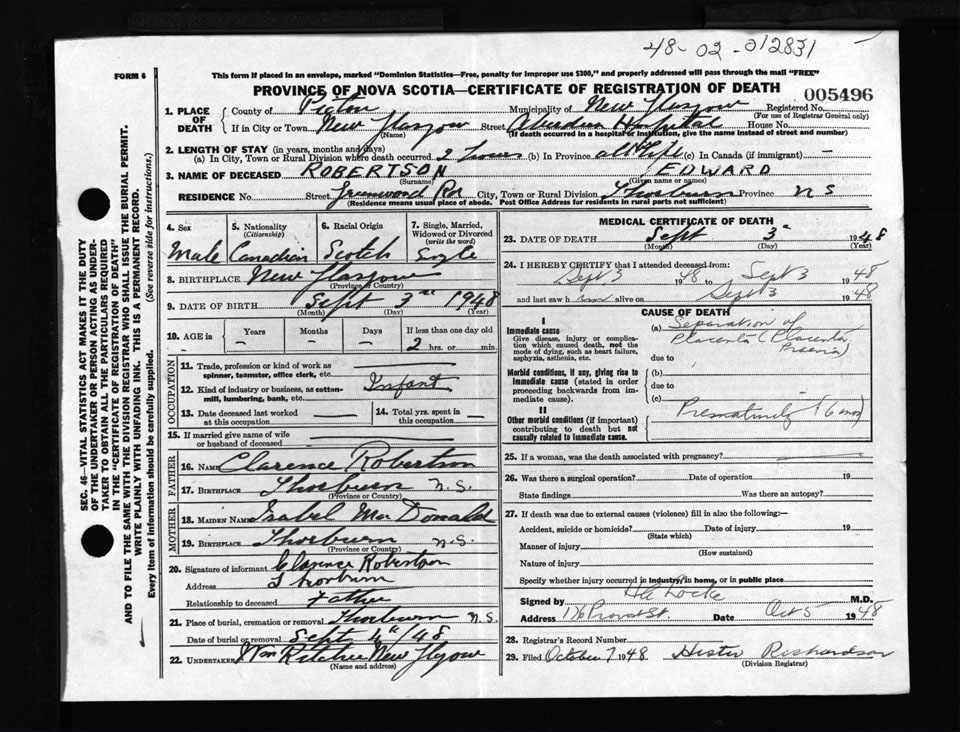 48-02-012831
FORM 6
This form if placed in an envelope, marked "Dominion Statistics—Free, penalty for improper use $300," and properly addressed will pass through the mail "FREE"
PROVINCE OF NOVA SCOTIA—CERTIFICATE OF REGISTRATION OF DEATH
005496
SEC. 46—VITAL STATISTICS ACT MAKES IT THE DUTY
OF THE UNDERTAKER OR PERSON ACTING AS UNDER-
TAKER TO OBTAIN ALL THE PARTICULARS REQUIRED
IN THE "CERTIFICATE OF REGISTRATION OF DEATH"
AND TO FILE THE SAME WITH THE DIVISION REGISTRAR WHO SHALL ISSUE THE BURIAL PERMIT.
WRITE PLAINLY WITH UNFADING INK. THIS IS A PERMANENT RECORD.
Every item of information should be carefully supplied. (See reverse side for instructions.)
1. PLACE OF DEATH
County of Pictou Municipality of New Glasgow Registered No.
(For use of Registrar General only)
If in City or Town New Glasgow Street Aberdeen Hospital House No.
(Name) (If death occurred in a hospital or institution, give the name instead of street and number)
2. LENGTH OF STAY (in years, months and days)
(a) In City, Town or Rural Division where death occurred 2 hours (b) In Province all life (c) In Canada (if immigrant) —
3. NAME OF DECEASED ROBERTSON EDWARD
(Surname) (Given name or names)
RESIDENCE No. Street Greenwood Rd City, Town or Rural Division Thorburn Province N S
(Residence means usual place of abode. Post Office Address for residents in rural parts not sufficient)
4. Sex
Male
5. Nationality
(Citizenship)
Canadian
6. Racial Origin
Scotch
7. Single, Married,
Widowed or Divorced
(write the word)
Single
8. BIRTHPLACE New Glasgow
(Province or Country)
9. DATE OF BIRTH Sept 3rd 1948
(Month) (Day) (Year)
10. AGE in
Years Months Days If less than one day old
— — — — 2 hrs. or min.
OCCUPATION
11. Trade, profession or kind of work as
spinner, teamster, office clerk, etc.
12. Kind of industry or business, as cotton-
mill, lumbering, bank, etc. Infant
13. Date deceased last worked
at this occupation
14. Total yrs. spent in
this occupation
15. If married give name of wife
or husband of deceased
FATHER
16. NAME Clarence Robertson
17. BIRTHPLACE Thorburn N.S.
(Province or Country)
MOTHER
18. MAIDEN NAME Isabel MacDonald
19. BIRTHPLACE Thorburn N.S.
(Province or Country)
20. Signature of informant Clarence Robertson
Address Thorburn
Relationship to deceased Father
21. Place of burial, cremation or removal Thorburn N.S.
Date of burial or removal Sept 4th/48
22. UNDERTAKER Wm Ritchie New Glasgow
(Name and address)
MEDICAL CERTIFICATE OF DEATH
23. DATE OF DEATH Sept 3 1948
(Month) (Day) (Year)
24. I HEREBY CERTIFY that I attended deceased from:
Sept 3 1948 to Sept 3 1948
and last saw h im alive on Sept 3 1948
CAUSE OF DEATH
I
Immediate cause
Give disease, injury or complica-
tion which caused death, not the
mode of dying, such as heart failure,
asphyxia, asthenia, etc.
(a) Separation of
Placenta (Placenta
Praevia)
due to
Morbid conditions, if any, giving rise to
immediate cause (stated in order
proceeding backwards from im-
mediate cause).
(b)
due to
(c)
II
Other morbid conditions (if important)
contributing to death but not
causally related to immediate cause.
Prematurity (6 mos)
25. If a woman, was the death associated with pregnancy?
26. Was there a surgical operation? Date of operation 19
State findings Was there an autopsy?
27. If death was due to external causes (violence) fill in also the following:—
Accident, suicide or homicide? Date of injury 19
(State which)
Manner of injury
(How sustained)
Nature of injury
Specify whether injury occurred in industry, in home, or in public place
Signed by H A Locke M.D.
Address 176 Provost St. Date Oct 5 1948
28. Registrar's Record Number
29. Filed October 7 1948 Hester Richardson
(Division Registrar)